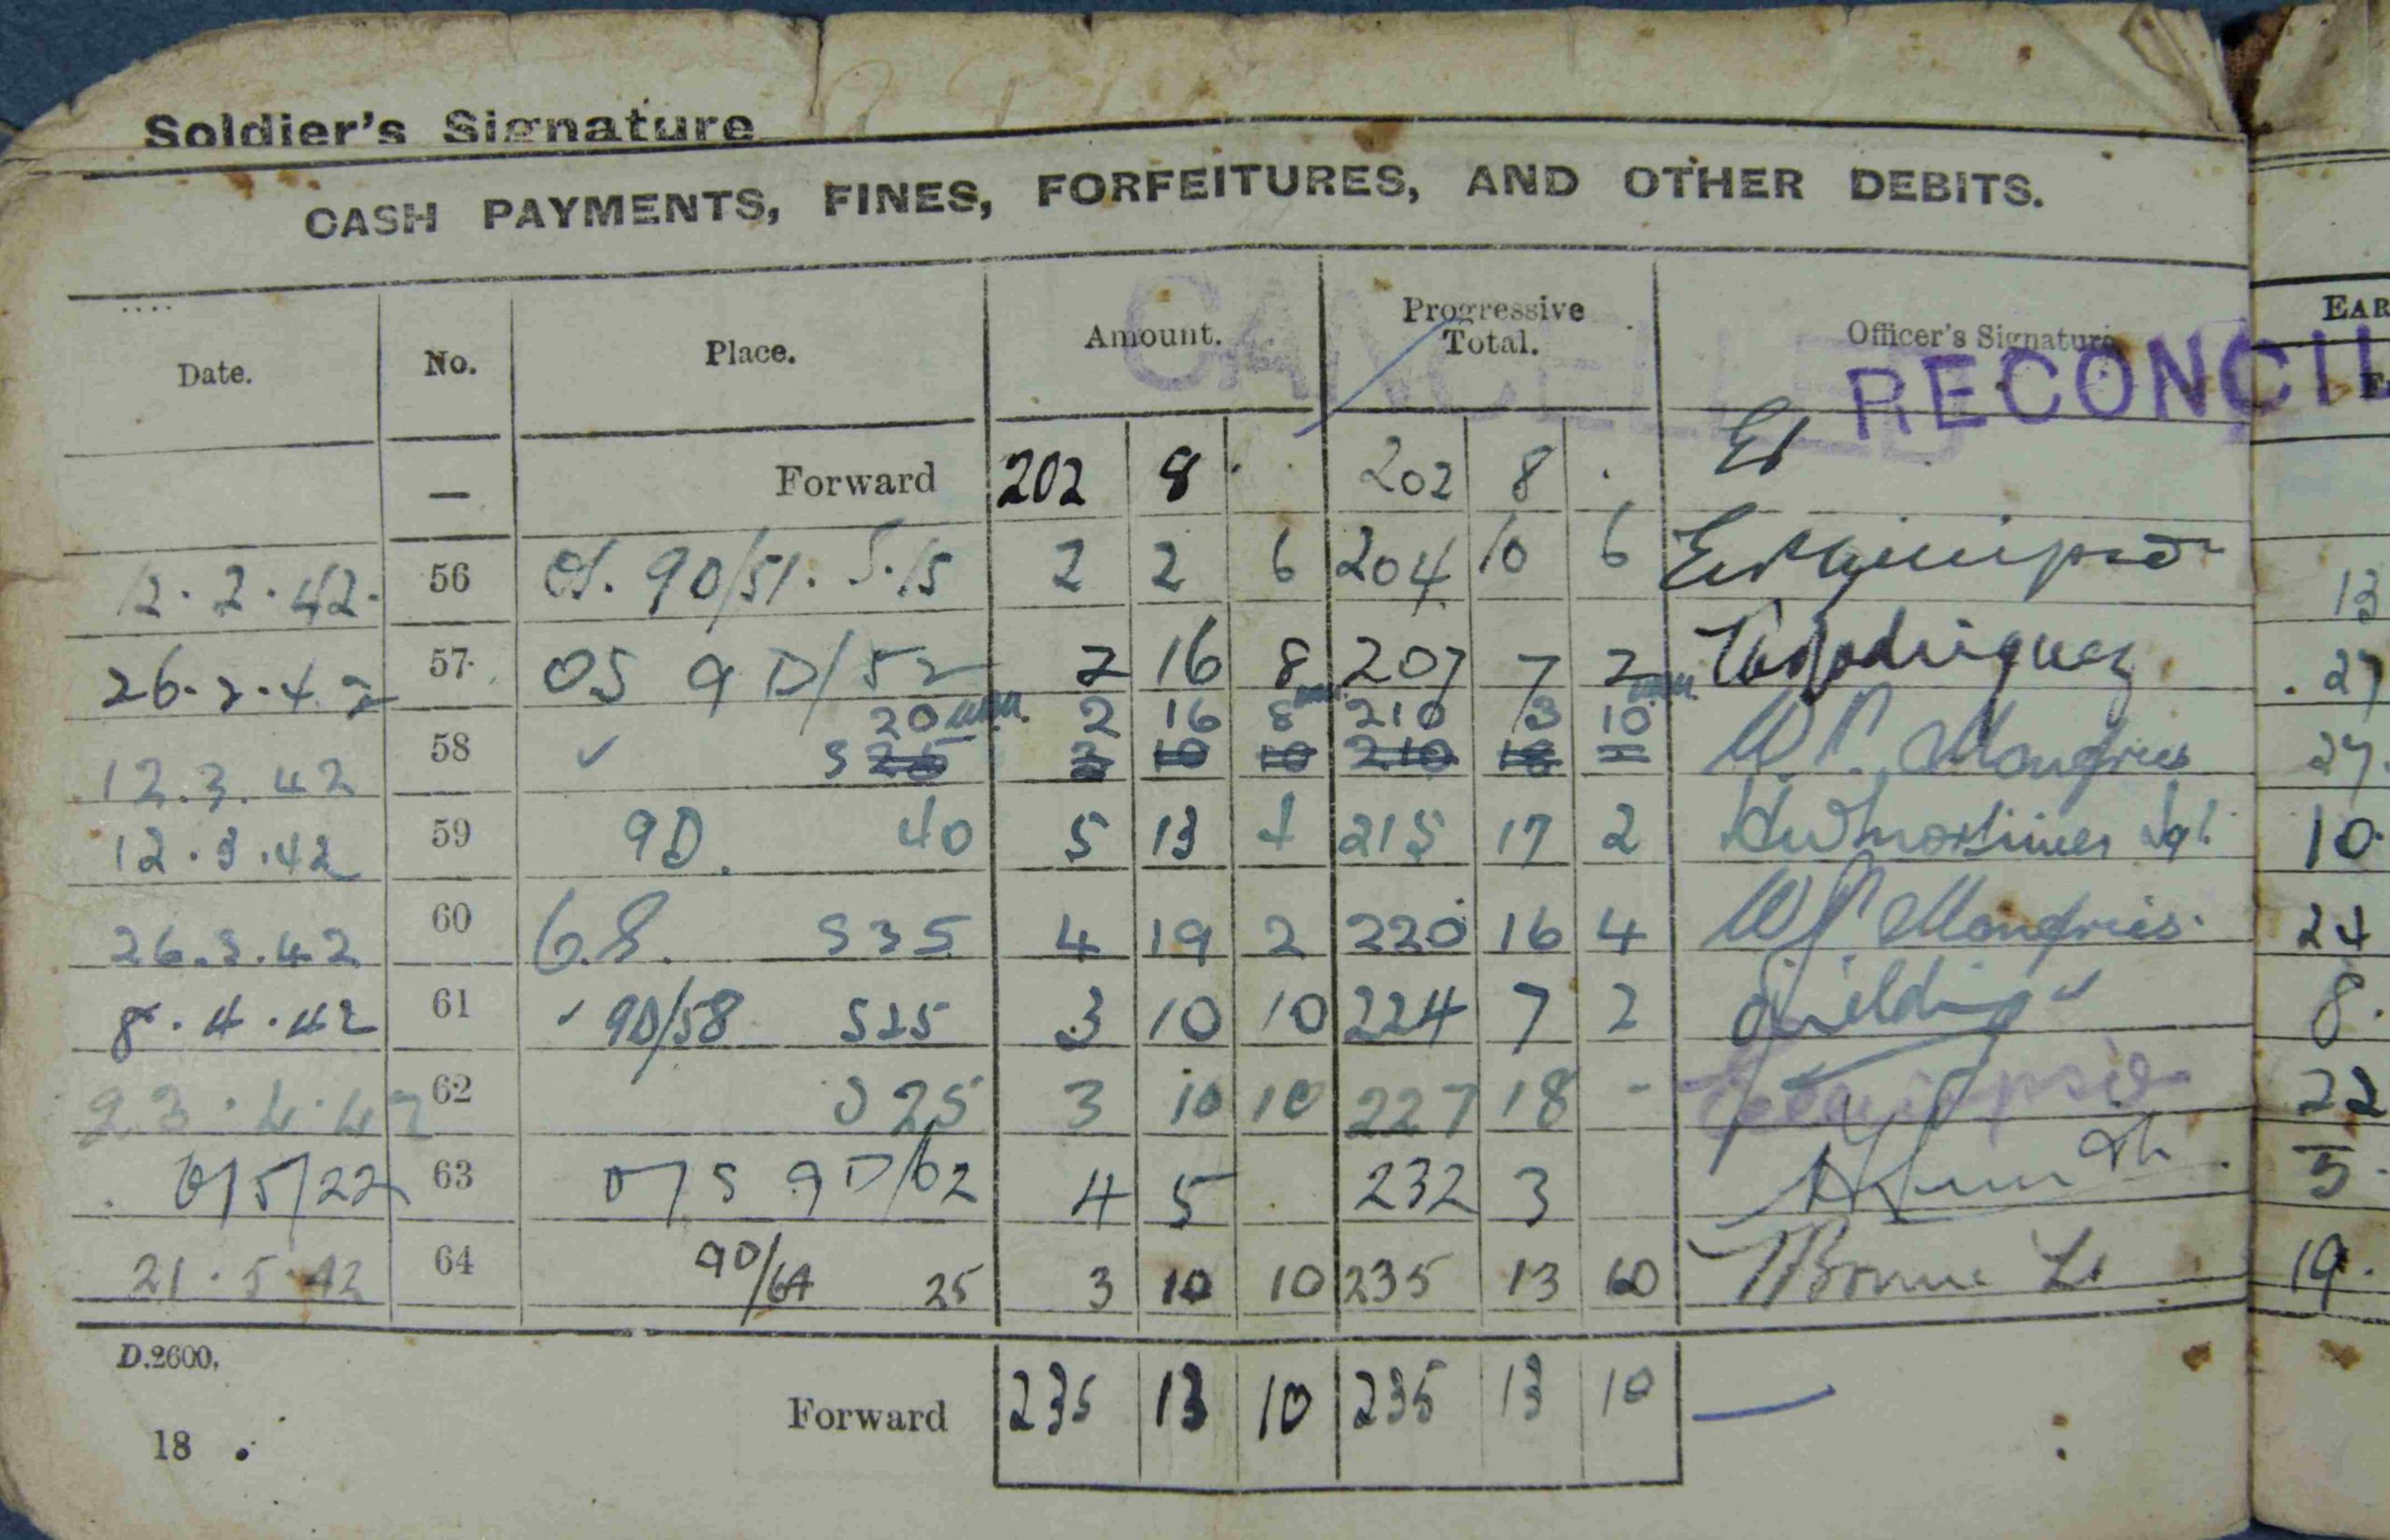 Soldier's Signature
CASH PAYMENTS, FINES, FORFEITURES, AND OTHER DEBITS.
Date. No. Place. Amount. Progressive Total. Officer's Signature
CANCELLED
RECONCIL
EAR
— Forward 202 8 . 202 8 .
12.2.42. 56 90/51. 2 2 6 204 10 6
26.2.42 57 OS 9D/52 2 16 8 207 7 2 Rodriguez
20 2 16 8 210 3 10
12.3.42 58 ✓ S 25 3 10 10 210 18 =
12.3.42 59 9D. 40 5 13 4 215 17 2 Mortimer
26.3.42 60 S35 4 19 2 220 16 4
8.4.42 61 ✓ 9D/58 S25 3 10 10 224 7 2
23.4.42 62 S25 3 10 10 227 18 -
63 O/S 9D/62 4 5 232 3
21.5.42 64 9D/64 25 3 10 10 235 13 10
D.2600.
Forward 235 13 10 235 13 10 —
18
13
27
27.
10.
24
8.
22
5.
19.